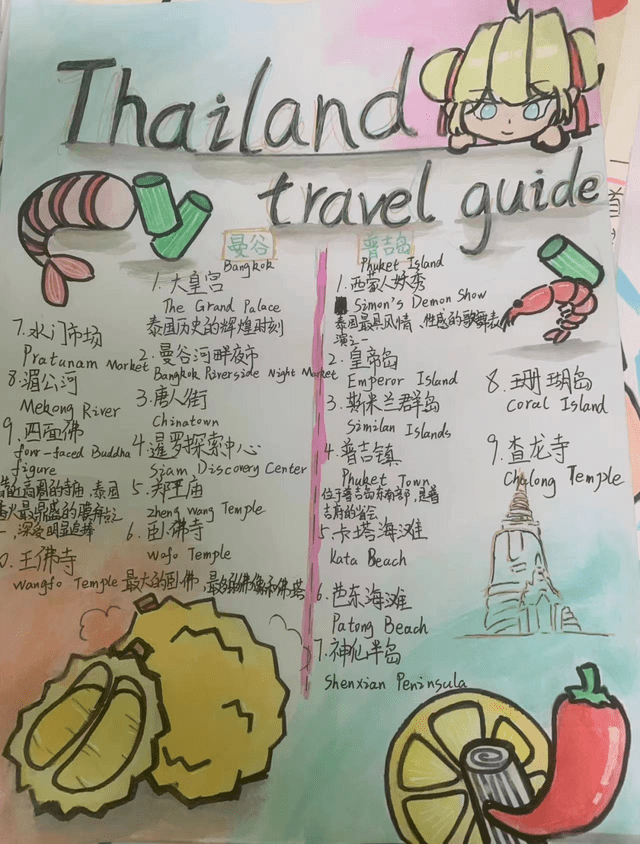 Thailand
travel guide
曼谷
Bangkok
1. 大皇宫
The Grand Palace
泰国历史的辉煌时刻
2. 曼谷河畔夜市
Bangkok Riverside Night Market
3. 唐人街
Chinatown
4. 暹罗探索中心
Siam Discovery Center
5. 郑王庙
zheng Wang Temple
6. 卧佛寺
Wofo Temple
7. 水门市场
Pratunam Market
8. 湄公河
Mekong River
9. 四面佛
four-faced Buddha
figure
王佛寺
Wangfo Temple 最大的卧佛,最多的佛像和佛塔
普吉岛
Phuket Island
1. 西蒙人妖秀
Simon's Demon Show
泰国最具风情、性感的歌舞表
演之一
2. 皇帝岛
Emperor Island
3. 斯米兰群岛
Similan Islands
4. 普吉镇
Phuket Town
位于普吉岛东南部,是普
吉府的省会
5. 卡塔海滩
Kata Beach
6. 芭东海滩
Patong Beach
7. 神仙半岛
Shenxian Peninsula
8. 珊瑚岛
Coral Island
9. 查龙寺
Chalong Temple